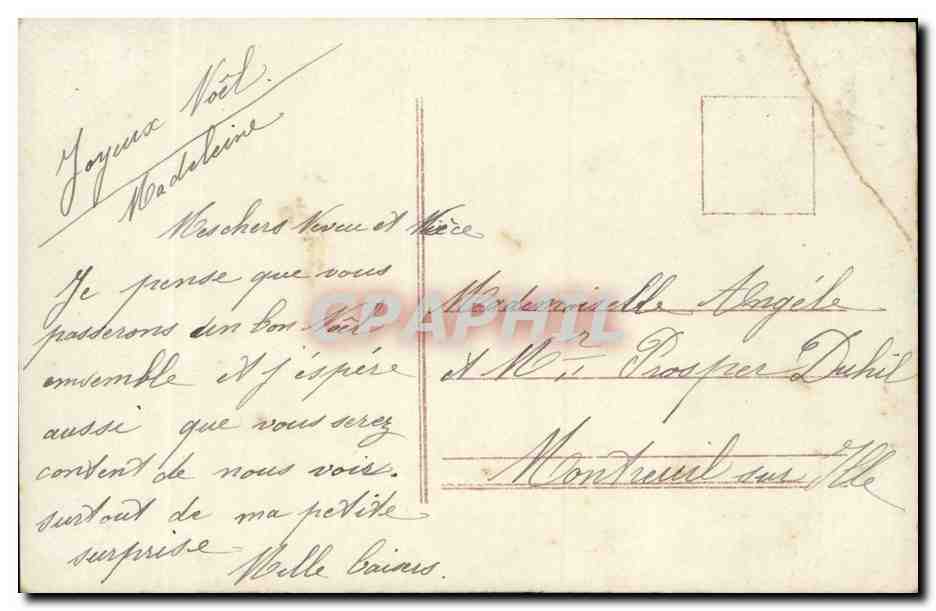 Joyeux Noël.
Madeleine
Meschers Neveu et Nièce
Je pense que vous
passerons un bon Noël
ensemble et j'éspére
aussi que vous serez
content de nous voir.
surtout de ma petite
surprise
Mille baisers.
Mademoiselle Angéle
et Mr Prosper Duhil
Montreuil sur Ille
CPAPHIL